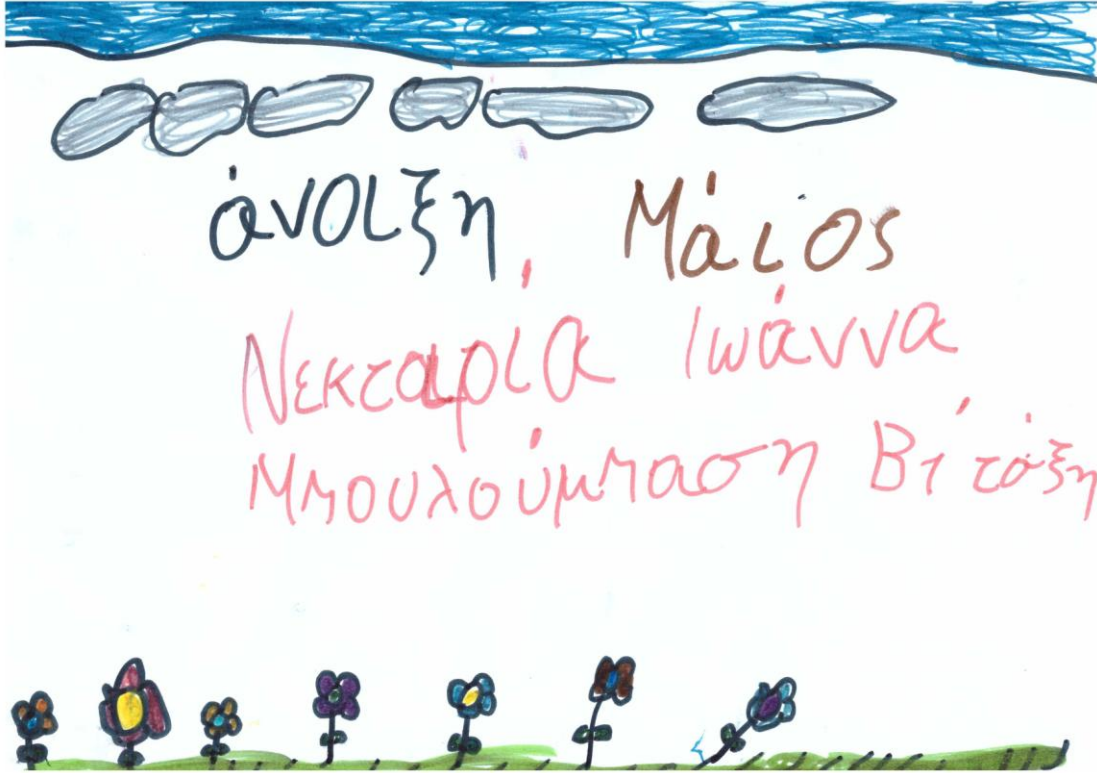 άνοιξη Μάιος
Νεκταρία Ιωάννα
Μπουλούμπαση Β' τάξη